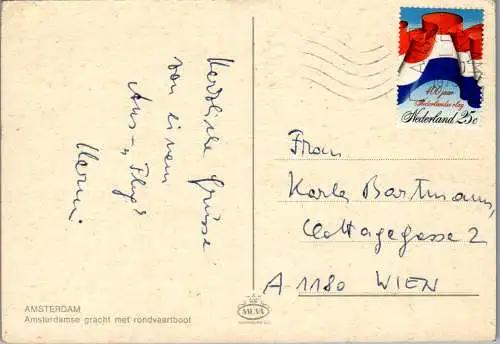 Herzliche Grüsse
von einem
Aus-„Flug"
400 jaar
Nederlandse vlag
Nederland 25c
Frau
Karla Bartmann
Cottagegasse 2
A-1180 WIEN
AMSTERDAM
Amsterdamse gracht met rondvaartboot
MUVA